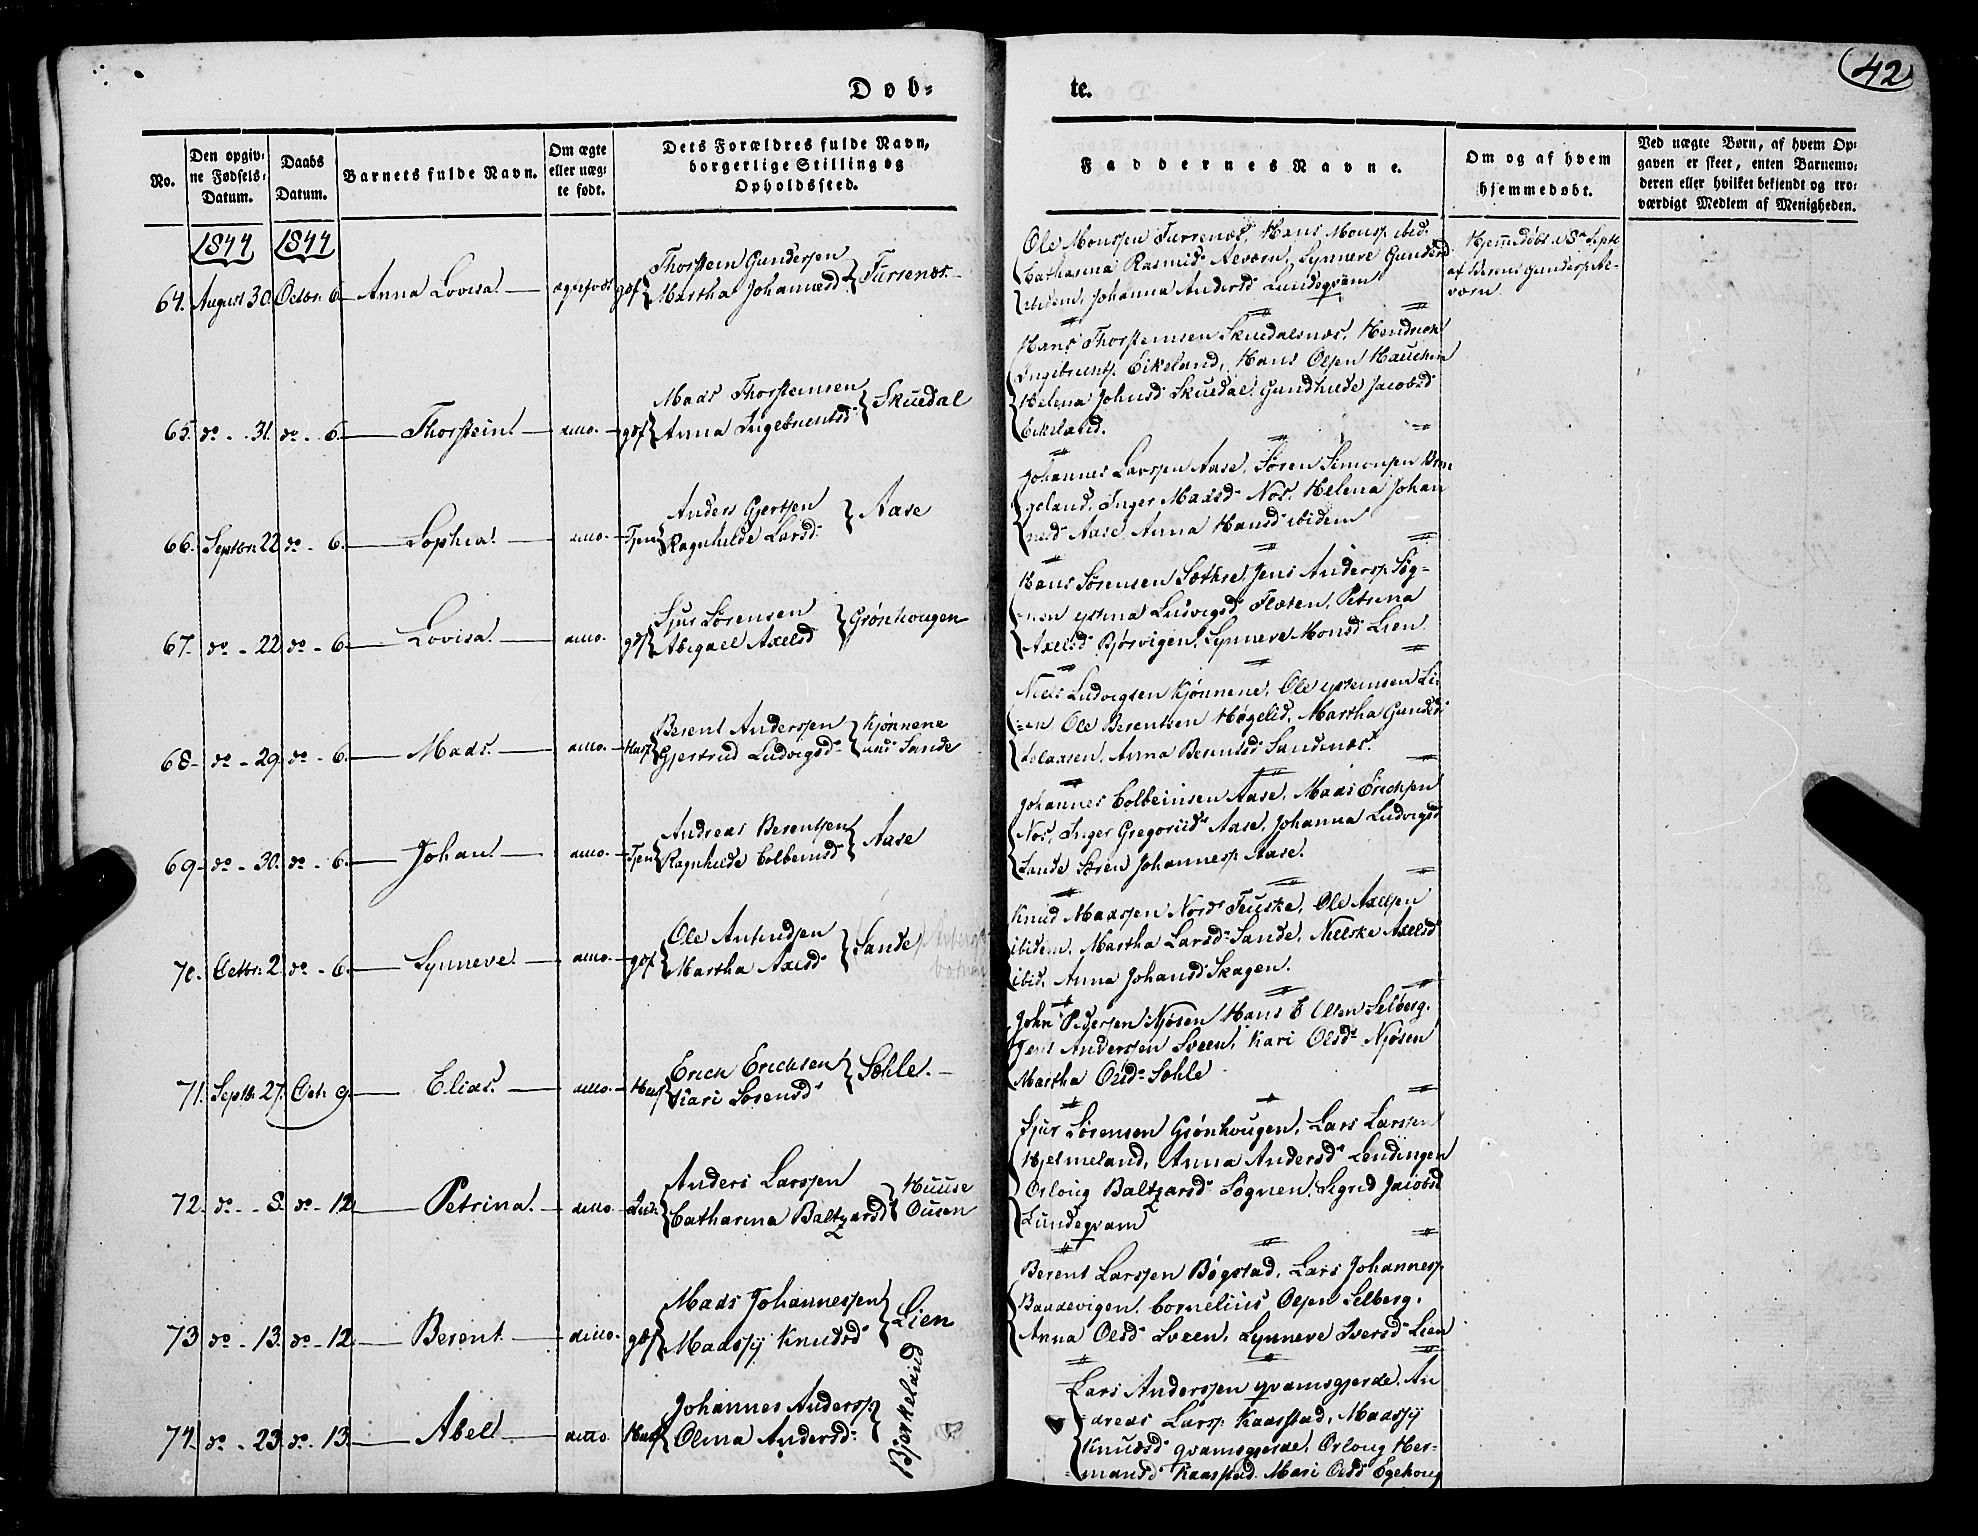 42
Døb=
te.
No.
Den opgiv=
ne Fødsels=
Datum.
Daabs
Datum.
Barnets fulde Navn.
Om ægte
eller uæg=
te født.
Dets Forældres fulde Navn,
borgerlige Stilling og
Opholdssted.
Faddernes Navne.
Om og af hvem
hjemmedøbt.
Ved uægte Børn, af hvem Op=
gaven er skeet, enten Barnemo=
deren eller hvilket bekjendt og tro=
værdigt Medlem af Menigheden.
1844 1844
64. August 30. Octbr. 6 Anna Lovisa. ægtefødt gdf
Thorstein Gundersen
Martha Johannesd. Fursenæs
Ole Monssen Fursenæs, Hans Monsp. ibid.
Catharina Rasmusd. Aevarn, Synneve Gundersd
ibidem, Johanna Andersd Lundeqvam
Hjemdøbt d. 8de Septbr
af Berent Gundersp. Ae-
varn
65. do - 31. do - 6. Thorstein! ditto. gdf
Mads Thorsteinsen
Anna Ingebrigtsd Skuedal
Hans Thorsteinsen Skuedalsnæs, Hendrick
Ingebrigtsp. Eikeland, Hans Olsen Hauchen
Helena Johnsd Skuedal. Gundhilde Jacobsd
Eikeland.
66. Septbr. 22 do - 6. Sophia! ditto. Tjen
Anders Gjertsen
Ragnhilde Larsd. Aase
Johannes Larssen Aase, Søren Simonsen
geland, Inger Madsd. Nos, Helena Johan
nesd Aase Anna Hansd ibidem
67. do - 22 do - 6. Lovisa! ditto. gdf
Sjur Sørensen
Abigael Axelsd Grønhougen
Hans Sørensen Sæthre, Jens Andersp. Søg-
nen ystina Ludvigsd Fleten, Petrina
Axelsd Bjørvigen, Synneve Monsd Lien
68. do - 29 do - 6. Mads. ditto. Husf
Berent Anderssen
Gjertrud Ludvigsd. Kjønnene
und. Sande
Niels Ludvigsen Kjønnene, Ole ysteinsen Li-
en Ole Berentsen Høgelid, Martha Gundersd
Anna Berentsd Sandenæs.
69. do - 30. do - 6. Johan! ditto. Tjen
Andreas Berentsen
Ragnhilde Colbeinsd Aase
Johannes Colbeinsen Aase. Mads Erichsen
Nos, Inger Gregoriid. Aase. Johanna Ludvigsd
Sande Søren Johannesp. Aase.
70. Octbr. 2 do - 6. Synneve. ditto. gdf
Ole Antudsen
Martha Axelsd Sande
Knud Madssen Nord Feuske, Ole Axelsen
ibidem. Martha Larsd. Sande. Nielske Axelsd
ibid. Anna Johansd Skagen.
71. Septbr. 27. Octr. 9. Elias. ditto. Husf
Erick Ericksen
Kari Sørensd Sæhle.
John Pedersen Njøsen Hans E Olsen Selberg.
Jens Anderssen Sveen, Kari Olsd. Njøsen
Martha Olsd. Sæhle
72. do - 8. do - 12. Petrina! ditto. Ind.
Anders Larssen
Catharina Baltzarsd Huuse
Ousen
Sjur Sørensen Grønhougen, Lars Larssen
Hjelmeland, Anna Andersd. Lendingen
Orloug Baltzarsd. Søgnen, Sigrid Jacobsd
Lundeqvam
73 do - 13. do - 12. Berent ditto. gdf
Mads Johannessen
Madssy Knudsd Lien
Berent Larssen Bøgstad, Lars Johannesp.
Baadevigen. Cornelius Olsen Selberg.
Anna Olsd Sveen, Synneve Iversd Lien
74. do - 23. do - 13. Abel! ditto. Husf
Johannes Andersp.
Olina Andersd. Bjerkeland
Lars Anderssen qvamsgjerde. An
dreas Larsp. Kaarstad, Madssy
Knudsd qvamsgjerde, Orloug Her-
mansd Kaarstad. Mari Olsd Egehoug